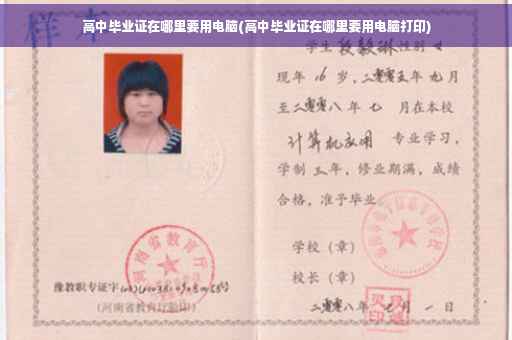 高中毕业证在哪里要用电脑(高中毕业证在哪里要用电脑打印)
样本
学生段毅琳性别女
现年16岁，二零零五年九月
至二零零八年七月在本校
计算机应用专业学习，
学制三年，修业期满，成绩
合格，准予毕业。
学校（章）
校长（章）
二零零八年 月一日
河南省教育厅
豫教职专证字
(河南省教育厅验印)